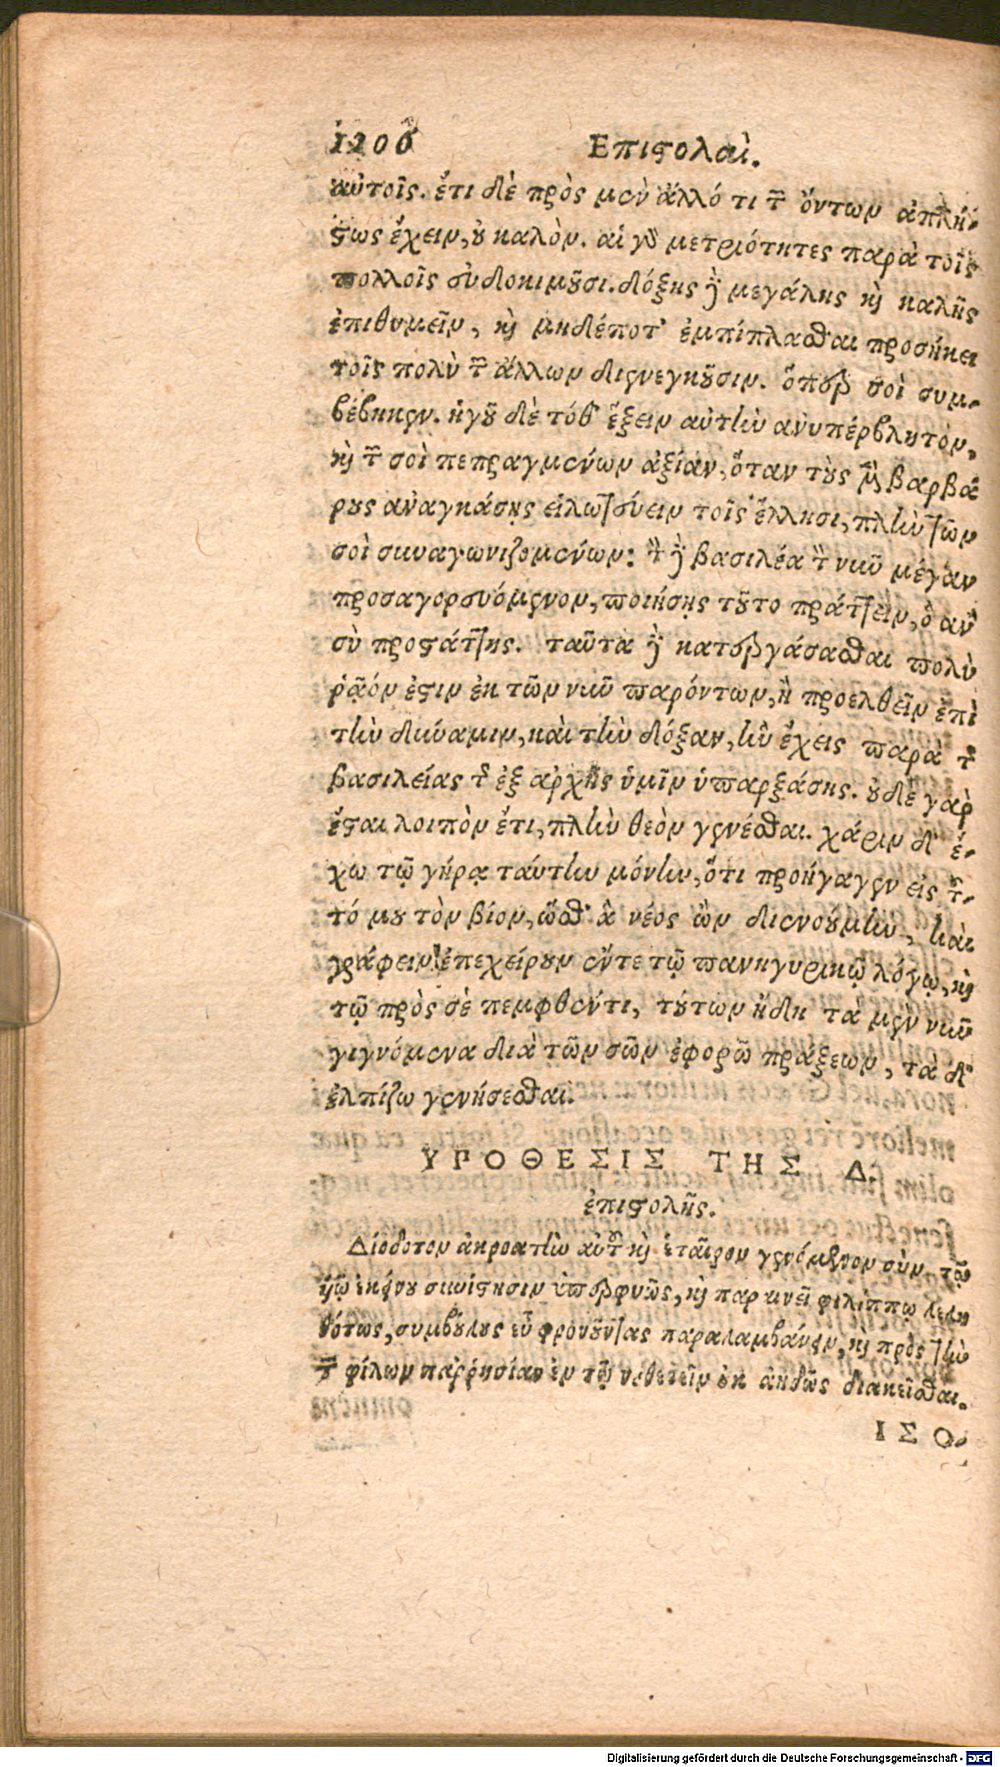 1206 Επιστολαὶ.
αὐτοῖς. ἔτι δὲ πρὸς μὲν ἄλλό τι τῶν ὄντων ἀπλή-
στως ἔχειν, οὐ καλὸν. αἱ γὰρ μετριότητες παρὰ τοῖς
πολλοῖς εὐδοκιμοῦσι. δόξης δὲ μεγάλης καὶ καλῆς
ἐπιθυμεῖν, καὶ μηδέποτ' ἐμπίπλασθαι προσήκει
τοῖς πολὺ τῶν ἄλλων διενεγκοῦσιν. ὅπερ σοὶ συμ-
βέβηκεν. ἡγοῦ δὲ τόθ' ἕξειν αὐτὴν ἀνυπέρβλητον,
καὶ τῶν σοὶ πεπραγμένων ἀξίαν, ὅταν τοὺς μὲν βαρβά
ρους ἀναγκάσῃς εἱλωτεύειν τοῖς ἕλλησι, πλὴν τῶν
σοὶ συναγωνιζομένων: τὸν δὲ βασιλέα τὸν νῦν μέγαν
προσαγορευόμενον, ποιήσῃς τοῦτο πράττειν, ὃ ἂν
σὺ προστάττῃς. ταῦτα δὲ κατεργάσασθαι πολὺ
ῥᾷόν ἐστιν ἐκ τῶν νῦν παρόντων, ἢ προελθεῖν ἐπὶ
τὴν δύναμιν, καὶ τὴν δόξαν, ἣν ἔχεις παρὰ τῆς
βασιλείας τῆς ἐξ ἀρχῆς ὑμῖν ὑπαρξάσης. οὐδὲ γὰρ
ἔσται λοιπὸν ἔτι, πλὴν θεὸν γενέσθαι. χάριν δ' ἔ-
χω τῷ γήρᾳ ταύτην μόνην, ὅτι προήγαγεν εἰς τοῦ-
τό μου τὸν βίον, ὥσθ' ἃ νέος ὢν διενοούμην, καὶ
γράφειν ἐπεχείρουν ἔντε τῷ πανηγυρικῷ λόγῳ, καὶ
τῷ πρὸς σὲ πεμφθέντι, τούτων ἤδη τὰ μὲν νῦν
γιγνόμενα διὰ τῶν σῶν ἐφορῶ πράξεων, τὰ δ'
ἐλπίζω γενήσεσθαι.
ΥΠΟΘΕΣΙΣ ΤΗΣ Δ.
ἐπιστολῆς.
Διόδοτον ἀκροατὴν αὐτοῦ καὶ ἑταῖρον γενόμενον σὺν τῷ
ὑῷ ἐκείνου συνίστησιν ὑπερφυῶς, καὶ παρκινεῖ φιλίππῳ λελη
θότως, συμβούλους εὖ φρονοῦντας παραλαμβάνειν, καὶ πρὸς τὴν
τῶν φίλων παῤῥησίαν ἐν τῷ νουθετεῖν οὐκ ἀηδῶς διακεῖσθαι.
ΙΣΟ-
Digitalisierung gefördert durch die Deutsche Forschungsgemeinschaft - DFG